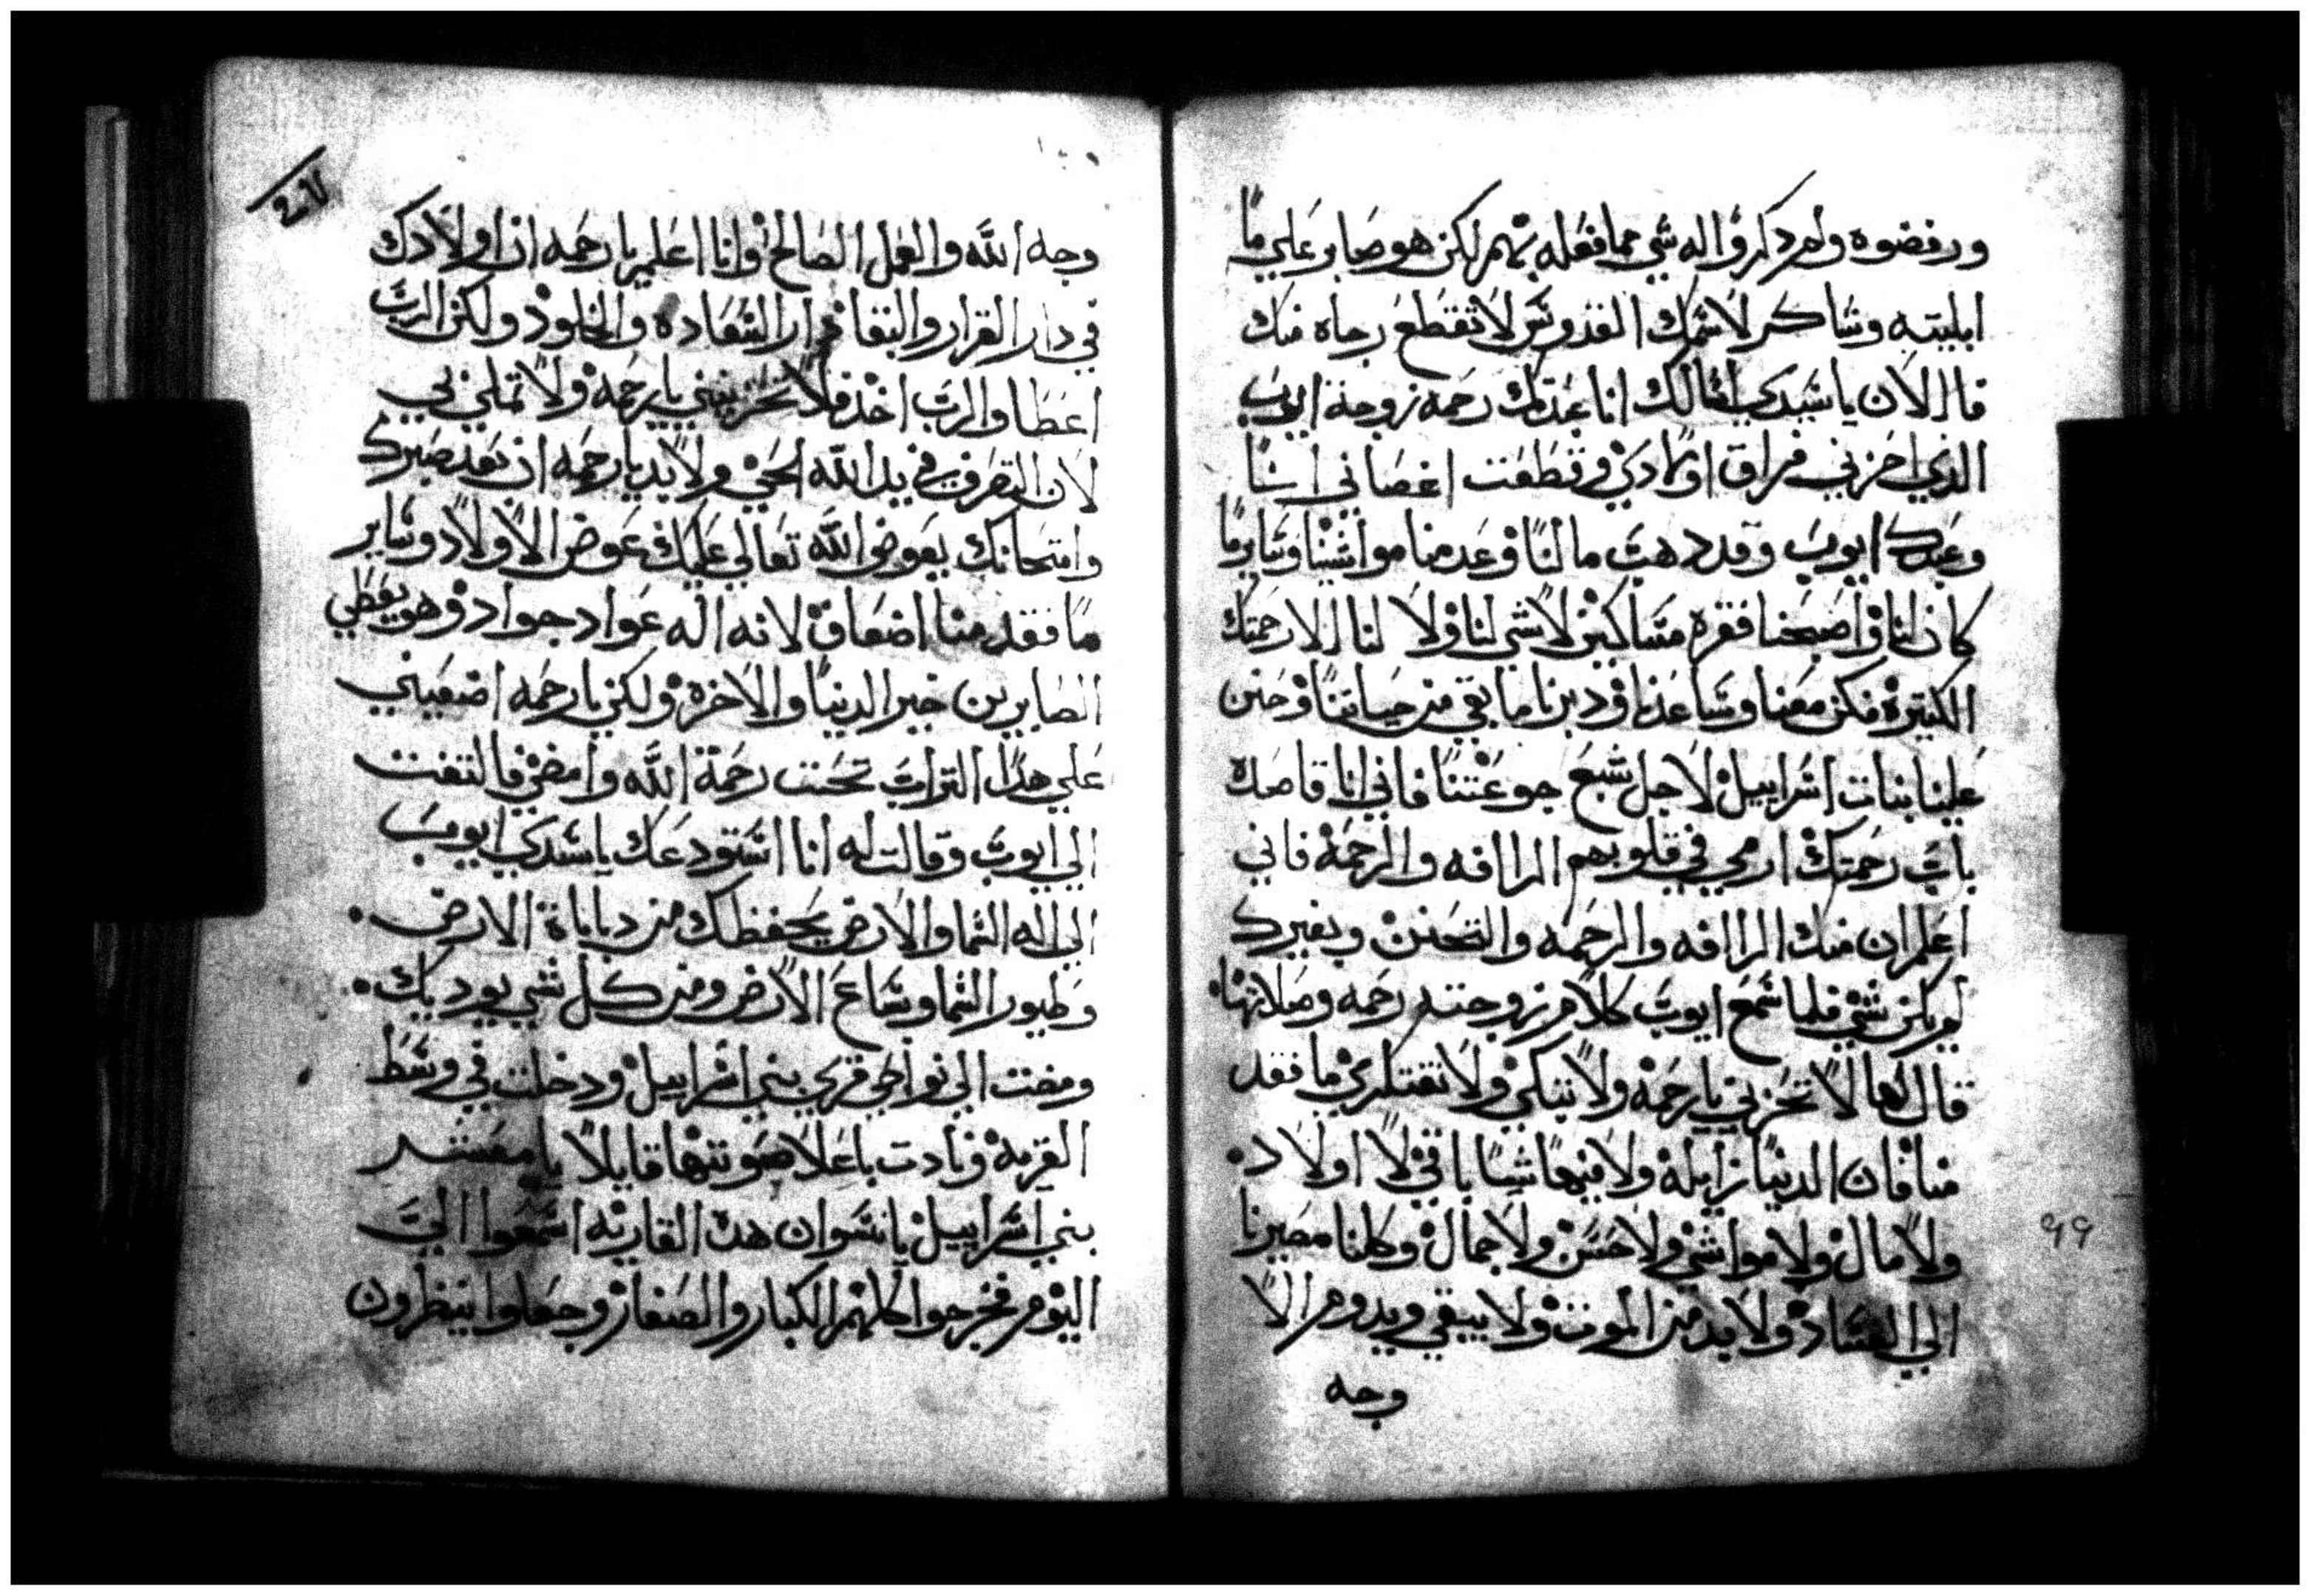 ورفضوه ولم دكروا له شي مما فعله بهم لكن هو صابر علي ما
ابليته وشاكر لاسمك القدوس لا تقطع رجاه منك
قال الان يا سيدي اسالك انا عبدتك رحمه زوجة ايوب
الدي احزني فراق اولادي وقطعت اغصاني انا
وعبدك ايوب وقد دهب مالنا وعدمنا مواشينا وساير ما
كان لنا واصبحنا فقره مساكين لا شي لنا ولا لنا الا رحمتك
الكتيرة فكن معنا وساعدنا ودبرنا ما بقي من حياتنا وحنن
علينا بنات اسراييل لاجل شبع جوعتنا فاني انا قاصده
باب رحمتك ارمي في قلوبهم الراافه والرحمة فاني
اعلم ان منك الراافه والرحمه والتحنن وبغيرك
لم يكن شي فلما سمع ايوب كلام زوجته رحمه وصلاتها
قال لها لا تحزني يا رحمة ولا تبكي ولا تفتكري ما فقد
منا فان الدنيا زايله ولا فيها شيا باقي لا اولاد
ولا مال ولا مواشي ولا حسن ولا جمال وكلنا مصيرنا
الي الفساد ولا بد من الموت ولا يبقي ويدوم الا
وجه
٩٩
وجه الله والعمل الصالح وانا اعلم يا رحمه ان اولادك
في دار القرار والبقا دار السعاده والخلود ولكن الرب
اعطا والرب اخد فلا تحزنيني يا رحمة ولا تملي بي
لان التصرف في يد الله الحي ولا بد يا رحمه ان بعد صبرك
وامتحانك يعوض الله تعالي عليك عوض الاولاد وساير
ما فقد منا اضعاف لانه اله عواد جواد وهو يعطي
الصابرين خير الدنيا والاخرة ولكن يا رحمه اضعيني
علي هدا التراب تحت رحمة الله وامضي فالتفت
الي ايوب وقالت له انا استودعك يا سيدي ايوب
الي اله السما والارض يحفظك من دباباة الارض
وطيور السما وسباع الارض ومن كل شي يورديك
ومضت الي نواحي قري بني اسراييل ودخلت في وسط
القرية ونادت باعلا صوتها قايلا يا معشر
بني اسراييل يا نسوان هده القاريه اسمعوا الي
اليوم فخرجوا كلهم الكبار والصغار وجعلوا ينظرون